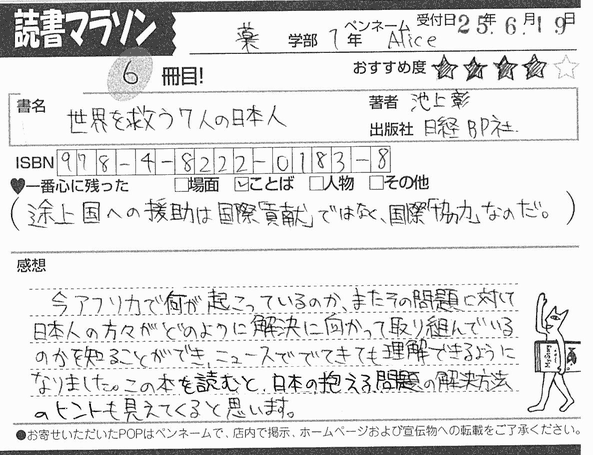 読書マラソン
薬 学部 1年 ペンネーム Alice 受付日 25年 6月 19日
6 冊目! おすすめ度 ★★★★☆
書名 世界を救う7人の日本人
著者 池上彰
出版社 日経BP社
ISBN 978-4-8222-0183-8
♥一番心に残った □場面 ☑ことば □人物 □その他
(途上国への援助は国際「貢献」ではなく、国際「協力」なのだ。)
感想
今アフリカで何が起こっているのか、またその問題に対して
日本人の方々がどのように解決に向かって取り組んでいる
のかを知ることができ、ニュースででてきても理解できるように
なりました。この本を読むと、日本の抱える問題の解決方法
のヒントも見えてくると思います。
●お寄せいただいたPOPはペンネームで、店内で掲示、ホームページおよび宣伝物への転載をご了承ください。